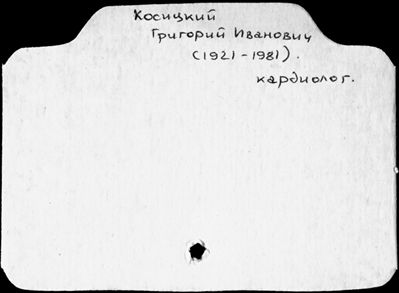 Косицкий
Григорий Иванович
(1921-1981).
кардиолог.